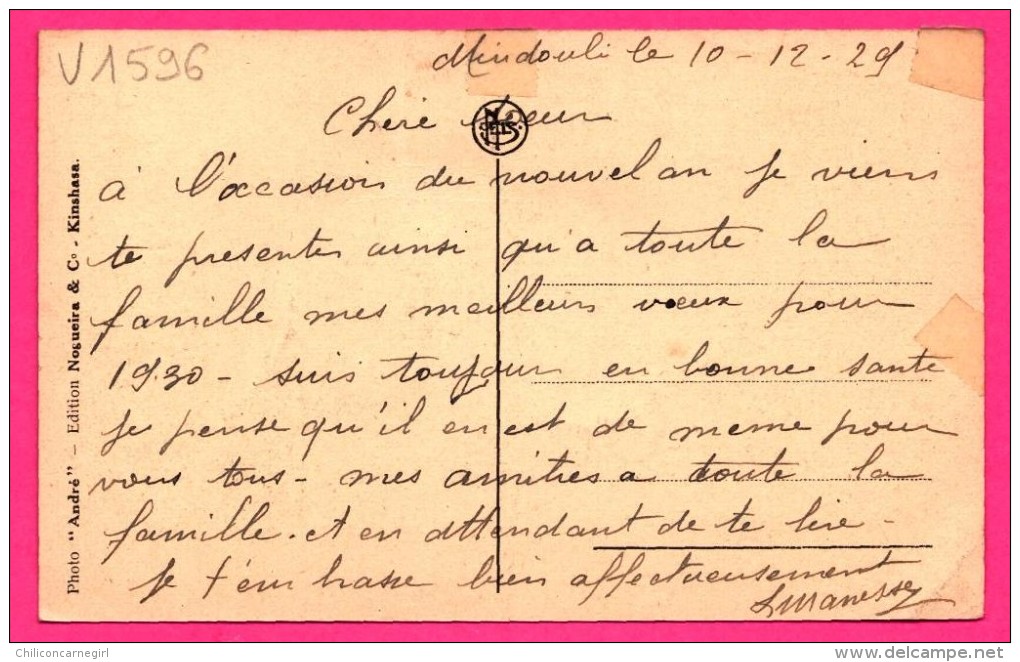 V1596
Mindouli le 10-12-29
Chère soeur
à l'occasion du nouvel an je viens
te presenter ainsi qu'a toute la
famille mes meilleurs voeux pour
1930 - suis toujour en bonne sante
je pense qu'il en est de meme pour
vous tous - mes amities a toute la
famille. et en attendant de te lire -
je t'embrasse bien affectueusement
Photo "André" — Edition Nogueira & Co - Kinshasa.
NELS
Chiliconcarnegirl
www.delcampe.net